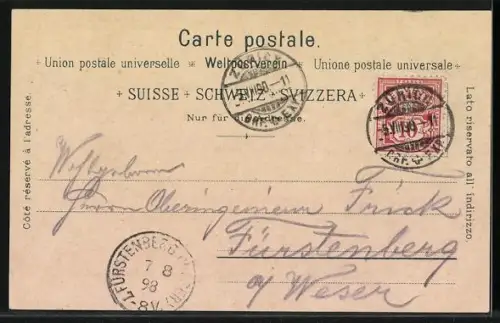 Carte postale.
Union postale universelle Weltpostverein Unione postale universale
SUISSE + SCHWEIZ + SVIZZERA +
Nur für die Adresse.
Côté réservé à l'adresse.
Lato riservato all' indirizzo.
ZÜRICH
ZÜRICH
Herrn Oberingenieur Frick
Fürstenberg
a/ Weser
FÜRSTENBERG
7 8
98
8 V.